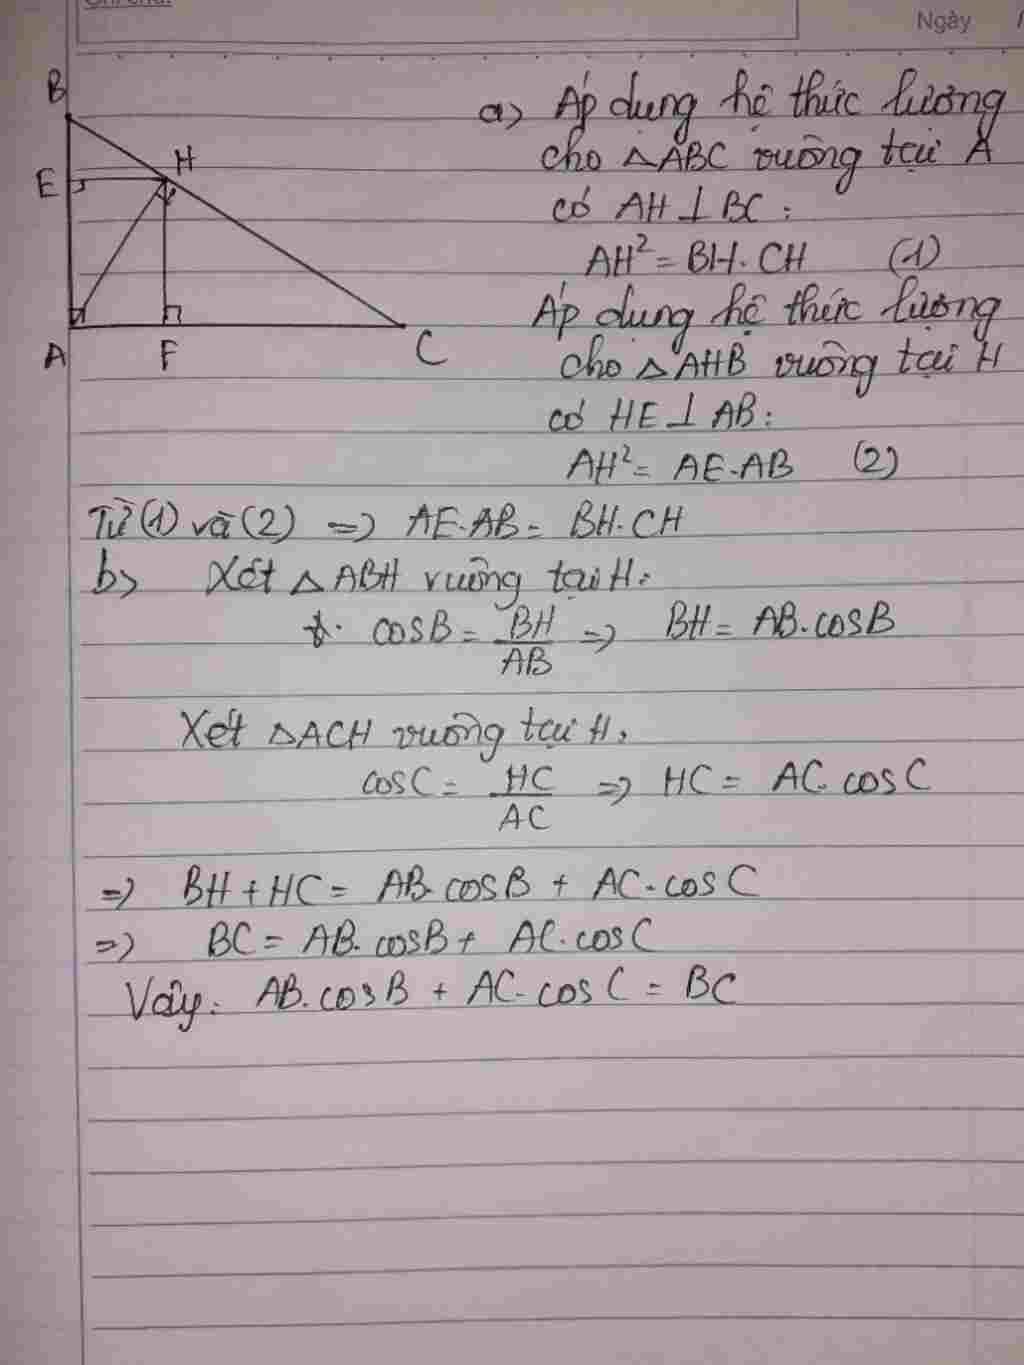 Ngày
B
E
H
A
F
C
a) Áp dụng hệ thức lượng
cho △ABC vuông tại A
có AH ⊥ BC :
AH² = BH . CH (1)
Áp dụng hệ thức lượng
cho △AHB vuông tại H
có HE ⊥ AB :
AH² = AE . AB (2)
Từ (1) và (2) => AE . AB = BH . CH
b) Xét △ABH vuông tại H :
cosB = BH/AB => BH = AB . cosB
Xét △ACH vuông tại H ,
cosC = HC/AC => HC = AC . cosC
=> BH + HC = AB . cosB + AC . cosC
=> BC = AB . cosB + AC . cosC
Vậy : AB . cosB + AC . cosC = BC